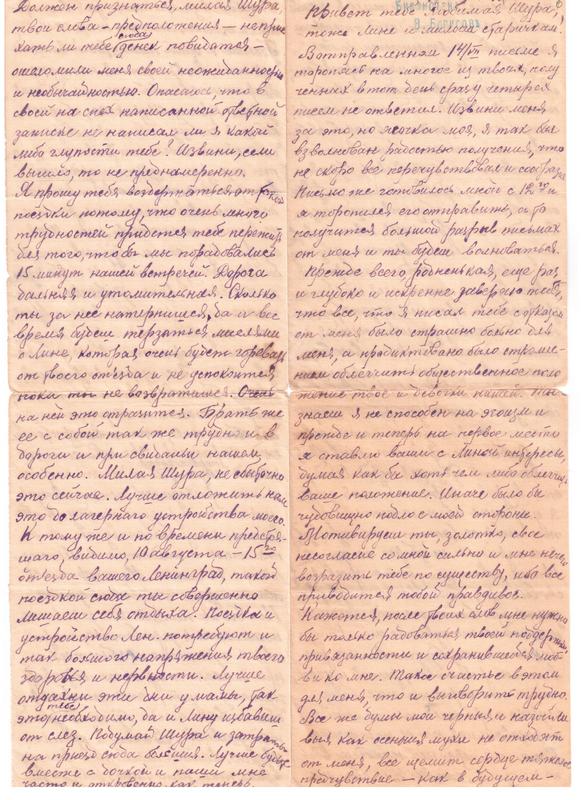 Должен признаться, милая Шура
твои слова – предположения – неприе
хать ли тебе сюда повидаться –
ошеломили меня своей неожиданностью
и необычайностью. Опасаюсь что в
своей на спех написанной ответной
записке не написал ли я какой
либо глупости тебе! Извини, если
вышло, то не преднамеренно.
Я прошу тебя воздержаться от такой
поездки потому, что очень много
трудностей придется тебе пережить
для того, что бы мы порадовались
15 минут нашей встречей. Дорога
дальняя и утомительная. Сколько
ты за нее натерпишся, да и все
время будешь терзаться мыслями
о Лине, которая очень будет горевать
от твоего отъезда и не успокоится
пока ты не возвратишся. Очень
на ней это отразится. Брать же
ее с собой так же трудно и в
дороге и при свидании нашем
особенно. Милая Шура, не сбыточно
это сейчас. Лучше отложить нам
это до лагерного устройства моего.
К тому же и по времени предстоя-
щего, видимо, 10 августа – 15 го
отъезда вашего Ленинград, такой
поездкой сюда ты совершенно
лишаешь себя отдыха. Поездка и
устройство Лен. потребуют и
так большого напряжения твоего
здоровья и нервности. Лучше
отдахни эти дни у мамы, так
это тебе необходимо, да и Лину избавишь
от слез. Подумай Шура и затраты
на приезд сюда большия. Лучше будешь
вместе с дочкой и паши мне
часто и откровенно как теперь.
Привет тебе милая Шура,
тоже Лине и милой старичкам!
В отправленном 14/VII письме я
торопясь на многое из твоих, полу
ченных в тот день сразу четырех
писем не ответил. Извини меня
за это, но жочка моя, я так был
взволнован радостью получения, что
не скоро все перечувствовал и сообразил
Письмо же готовилось мной с 12 го и
я торопился его отправить, а то
получится большой разрыв письмах
от меня и ты будешь волноваться.
Прежде всего, родненькая, еще раз
и глубоко и искренне заверяю тебя,
что все, что я писал тебе
от меня было страшно больно для
меня, а продиктовано было стремле-
нием облегчить общественное поло
жение твое и девочки нашей. Ты
знаеш я не способен на эгоизм и
прежде и теперь на первое место
я ставлю ваши с Линой интересы,
думая как бы хотя чем либо облегчить
ваше положение. Иначе было бы
чудовищно подло с моей стороны.
Мотивируеш ты, золотко, свое
несогласие со мной сильно и мне нечего
возразить тебе по существу, ибо все
приводится тобой правдивое.
Кажется, после твоих слов мне нужно
бы только радоваться твоей поддержки
привязанности и сохранившейся люб-
ви ко мне. Такое счастье в этом
для меня, что и выговорить трудно.
Все же думы мои черныя и назойли
выя как осенния мухи не отходят
от меня, все щемит сердце тяжелое
предчувствие – как в будущем –